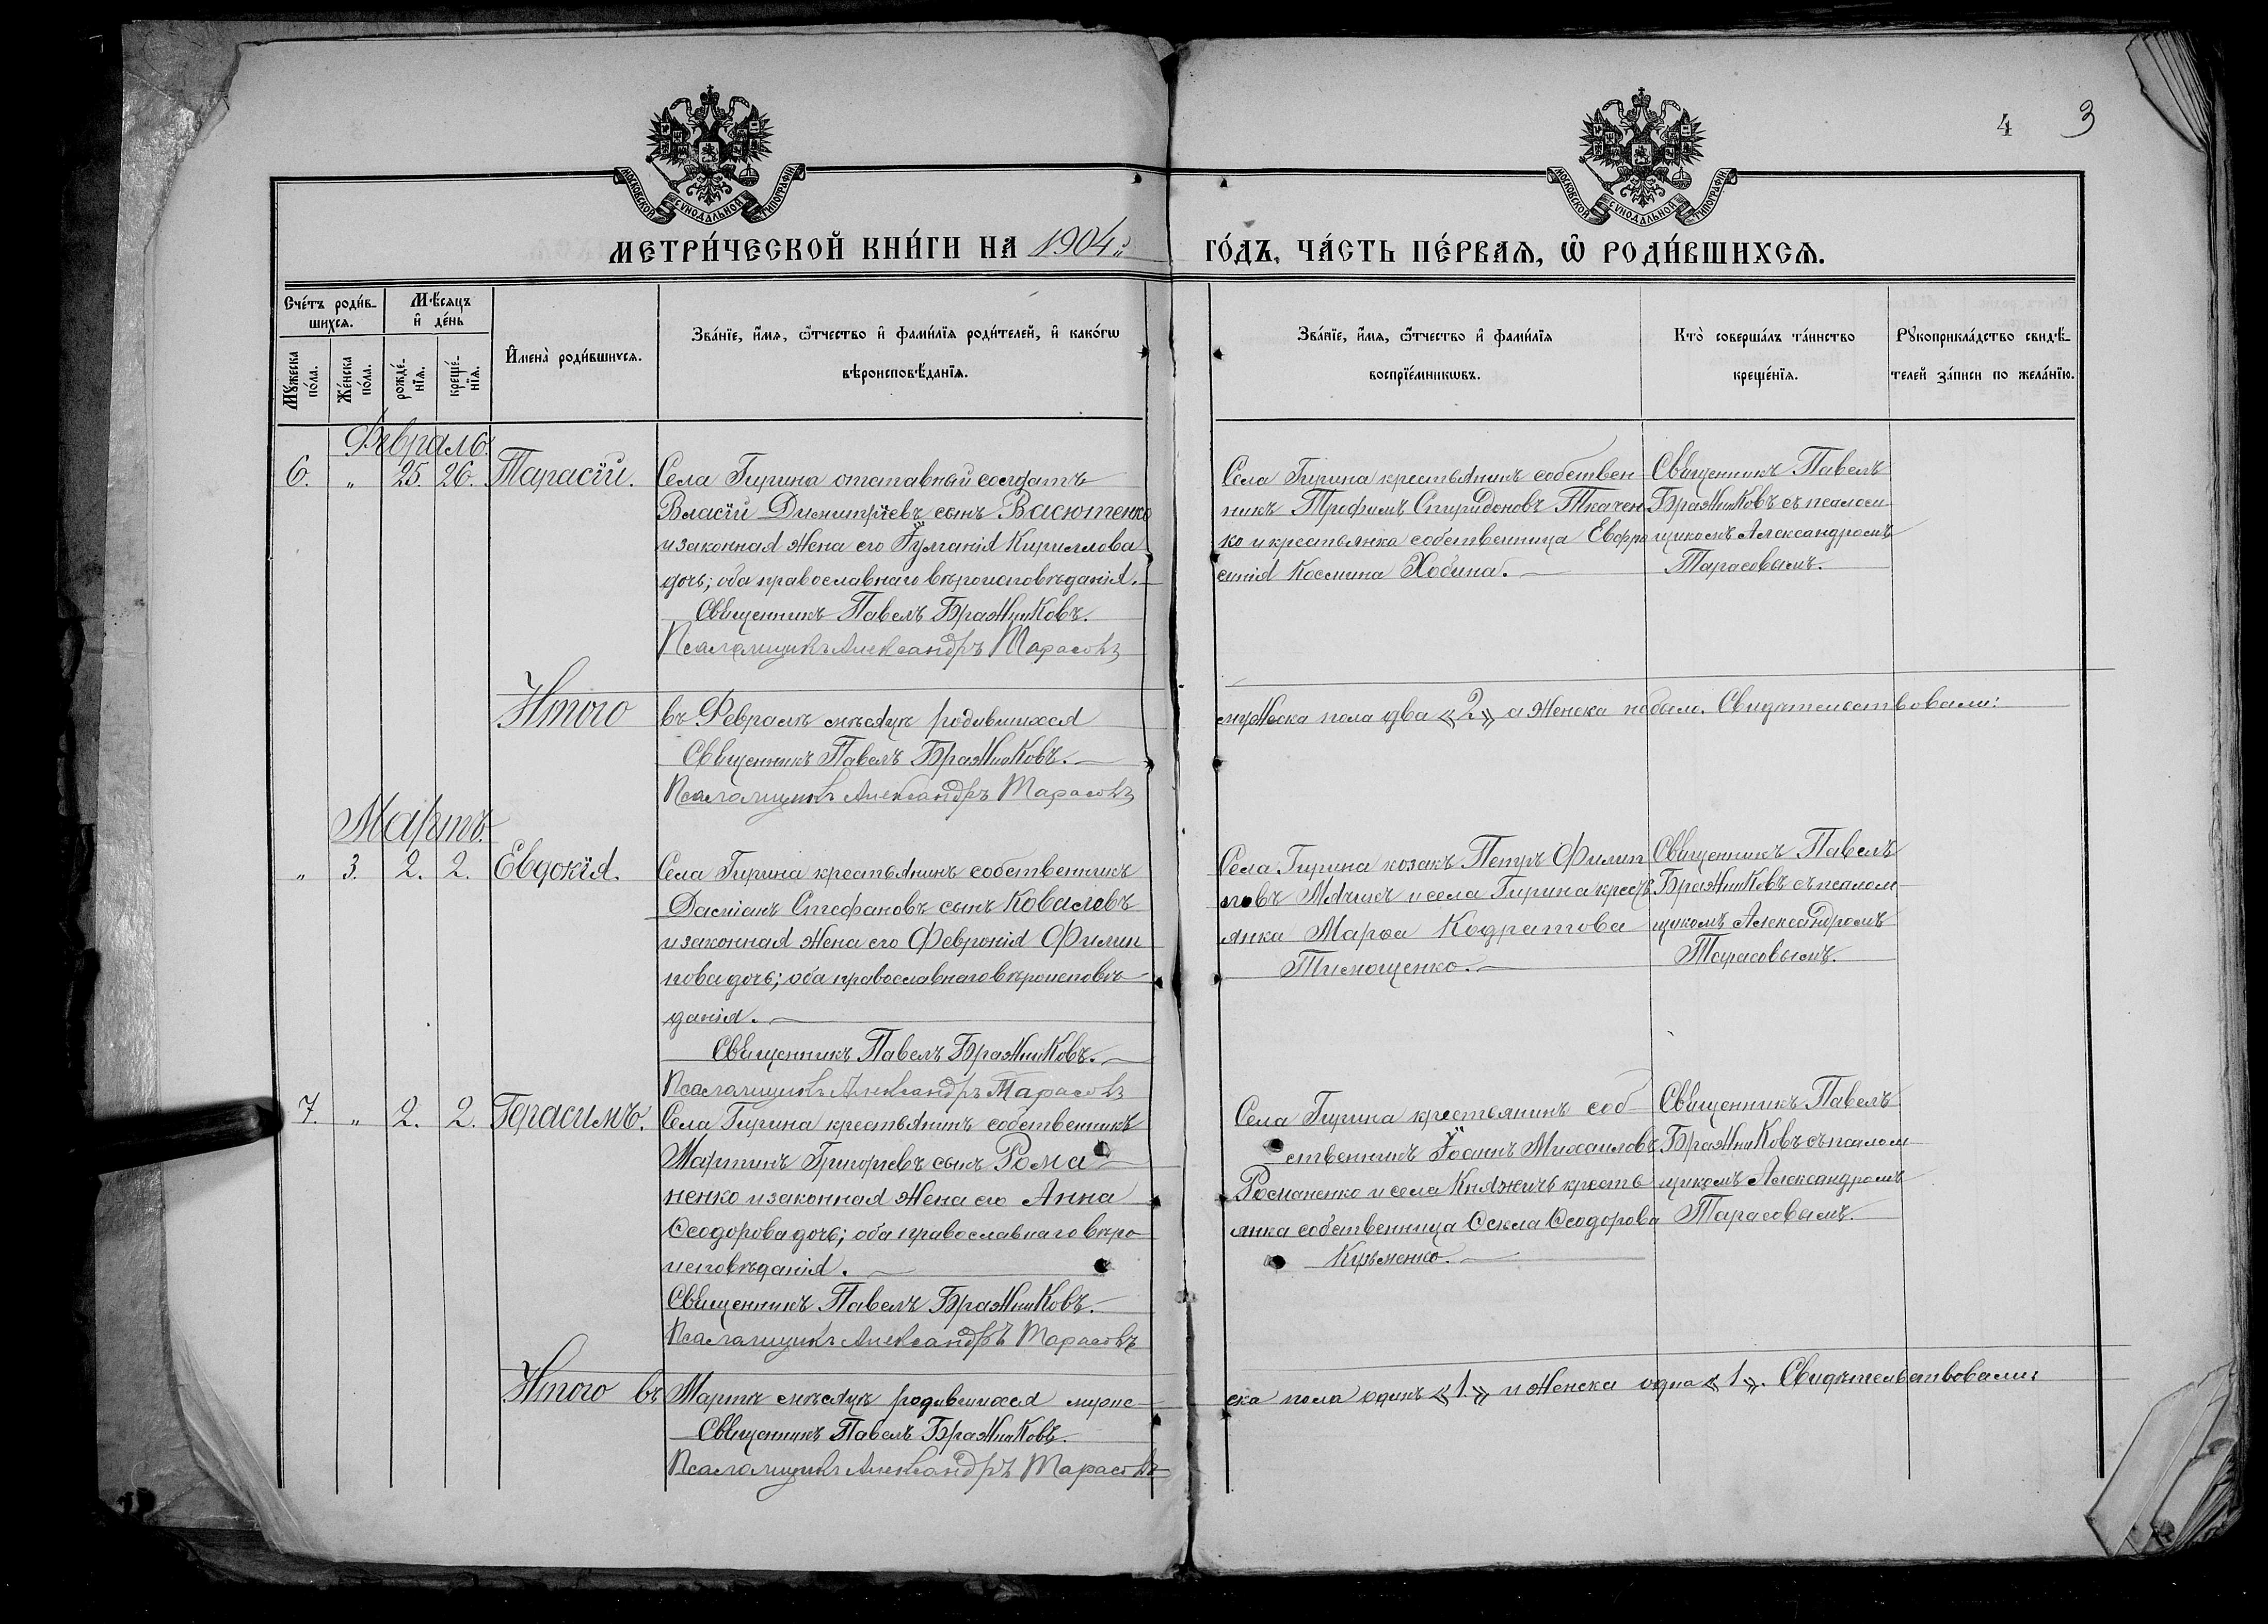 4 3
МОСКОВСКОЙ СѴНОДАЛЬНОЙ ТИПОГРАФІИ
МОСКОВСКОЙ СѴНОДАЛЬНОЙ ТИПОГРАФІИ
МЕТРИ́ЧЕСКОЙ КНИ́ГИ НА 1904й ГО́ДЪ, ЧА́СТЬ ПЕ́РВАѦ, Ѡ҆ РОДИ́ВШИХСѦ.
Сче́тъ роди́в-
шихсѧ.
Мѣ́сѧцъ
и҆ де́нь
Мꙋ́жеска
по́ла.
Же́нска
по́ла.
рожде́-
нїѧ.
креще́-
нїѧ.
И҆мена̀ роди́вшихсѧ.
Зва́нїе, и҆́мѧ, ѻ҆́тчество и҆ фами́лїѧ роди́телей, и҆ како́гѡ
вѣроисповѣ́данїѧ.
Зва́нїе, и҆́мѧ, ѻ҆́тчество и҆ фами́лїѧ
воспрїе́мникѡвъ.
Кто̀ соверша́лъ та́инство
креще́нїѧ.
Рꙋкоприкла́дство свидѣ́-
телей за́писи по жела́нїю.
Февраль.
6. " 25. 26. Тарасій. Села Гирина отставный солдатъ
Власій Димитріевъ сынъ Васютенко
и законная жена его Гуліанія Кириллова
дочь; оба православнаго вѣроисповѣданія.
Священникъ Павелъ Бражниковъ.
Псаломщикъ Александръ Тарасовъ
Села Гирина крестьянинъ собствен
никъ Трофимъ Спиридоновъ Ткачен
ко и крестьянка собственница Евфро
синія Космина Хобина.
Священникъ Павелъ
Бражниковъ съ псаломщ
щикомъ Александромъ
Тарасовымъ.
Итого въ Февралѣ мѣсяцѣ родившихся мужеска пола два «2» а женска не было. Свидѣтельствовали:
Священникъ Павелъ Бражниковъ.
Псаломщикъ Александръ Тарасовъ
Мартъ.
" 3. 2. 2. Евдокія. Села Гирина крестьянинъ собственникъ
Даміанъ Стефановъ сынъ Ковалевъ
и законная жена его Февронія Филип
пова дочь; оба православнаго вѣроисповѣ-
данія.
Священникъ Павелъ Бражниковъ.
Псаломщикъ Александръ Тарасовъ
Села Гирина козакъ Петръ Филип
повъ Мячикъ и села Гирина крест
янка Марѳа Кодратова
Тимощенко.
Священникъ Павелъ
Бражниковъ съ псалом-
щикомъ Александромъ
Тарасовымъ.
7. " 2. 2. Герасимъ. Села Гирина крестьянинъ собственникъ
Мартинъ Григорьевъ сынъ Рома-
ненко и законная жена его Анна
Ѳеодорова дочь; оба православнаго вѣро
исповѣданія.
Священникъ Павелъ Бражниковъ.
Псаломщикъ Александръ Тарасовъ
Села Гирина крестьянинъ соб-
ственникъ Іоаннъ Михаиловъ
Романенко и села Княжичъ кресть
янка собственница Ѳекла Ѳеодорова
Кузьменко.
Священникъ Павелъ
Бражниковъ съ псалом
щикомъ Александромъ
Тарасовымъ.
Итого въ Мартѣ мѣсяцѣ родившихся муже-ска пола одинъ «1» и женска одна «1». Свидѣтельствовали:
Священникъ Павелъ Бражниковъ.
Псаломщикъ Александръ Тарасовъ